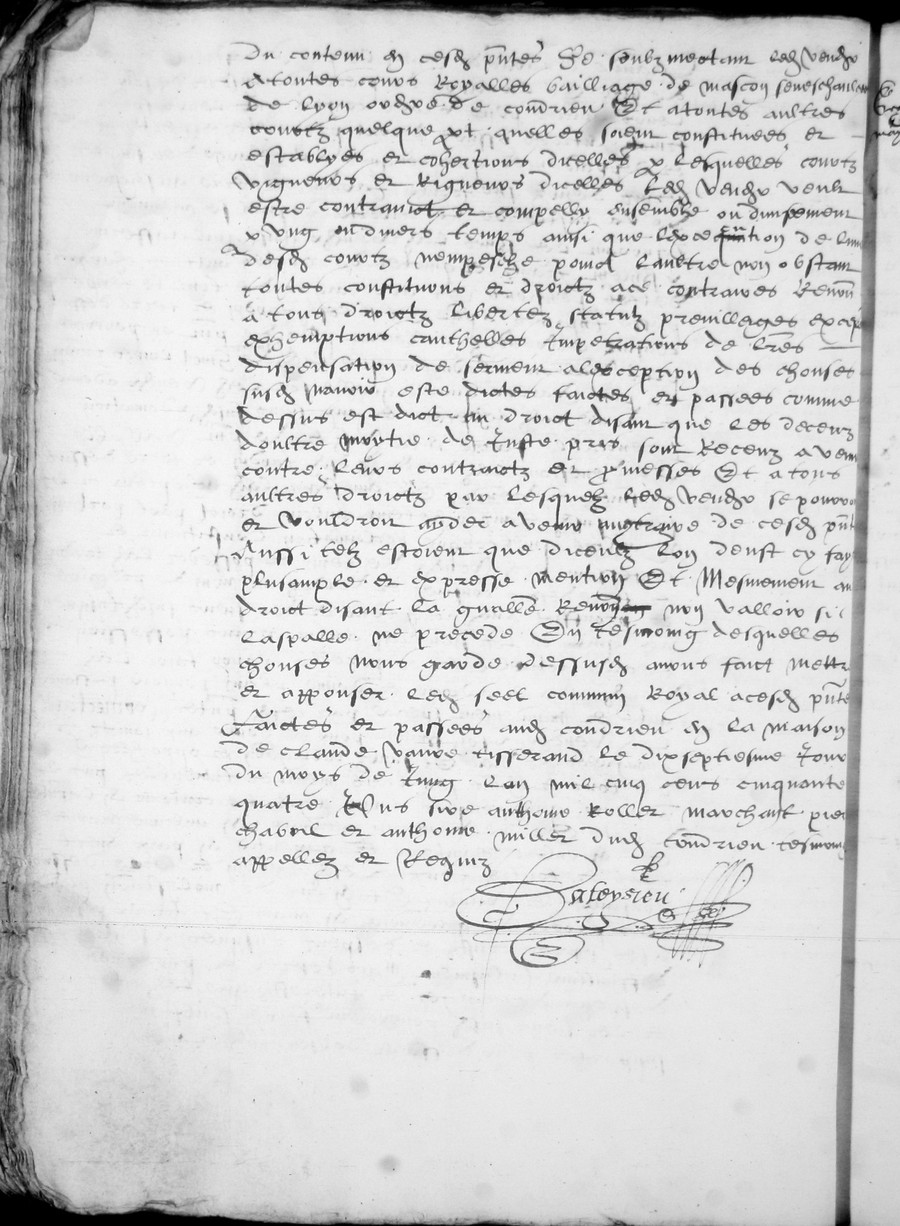 du contenu en cesd pntes Se soubzmectant led vendr
atoutes cours Royalles bailliage de mascon seneschaulcee
de lyon ordre de condrieu Et atoutes aultres
courtz quelque pt quelles soient constituees et
establyes et cohertions dicelles p lesquelles courtz
vigueurs et Rigueurs dicelles led vendr veult
estre contrainct et compelly ensemble ou
p ung ou divers temps ainsi que lexecution de lune
desd courtz nempesche poinct laultre non obstant
toutes constitutions et droictz ace contraires Renon
a tous droictz libertez statutz previllieges excep
exhemptions cauthelles Impetrations de lres
dispensation de serment alexception des chouses
susd navoir este dictes faictes et passees comme
dessus est dict au droict disant que les deceuz
doultre moytie de Juste pris sont Receuz a venir
contre leurs contractz et promesses Et a tous
aultres droictz par lesquelz led vendr se pourro
et vouldroit ayder a venir au contraire de cesd pnt
Aussi telz estoient que diceulx lon deust cy fay
plusample et expresse mention Et Mesmement au
droict disant la gnalle Renon non valloir si
laspalle ne precede En tesmoing desquelles
chouses nous garde dessusd avons faict mettr
et apposer led seel commun Royal acesd pnte
Faictes et passees aud condrieu en la maison
de claude tisserand le dixseptiesme Jour
du moys de Jung lan mil cinq cens cinquante
quatre Pns sire anthoine Roller marchant pie
chabril et anthoine miller dud condrieu tesmoing
appellez et Requiz